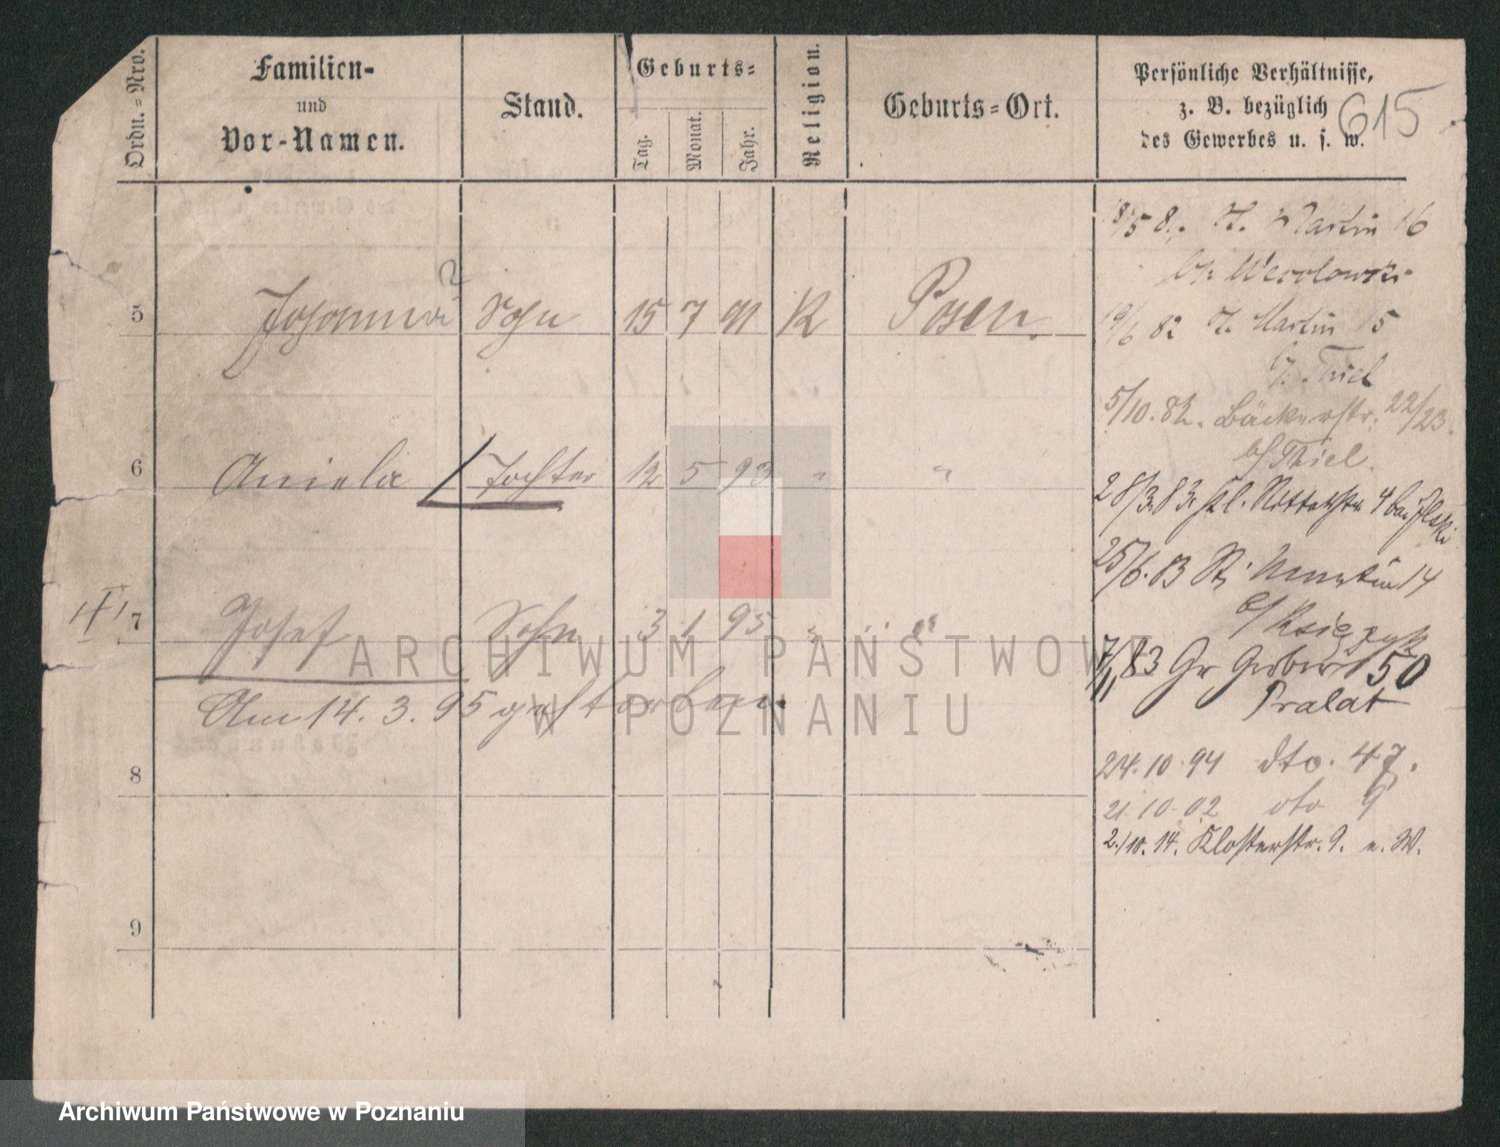 Ordn.=Nro.
Familien-
und
Vor-Namen.
Stand.
Geburts=
Tag.
Monat.
Jahr.
Religion.
Geburts=Ort.
Persönliche Verhältnisse,
z. B. bezüglich
des Gewerbes u. s. w.
615
5 Sohn 15 7 91 K Posen
6 Aniela Tochter 12 5 93 " "
7 Josef Sohn 3 1 95 " "
Am 14. 3. 95 gestorben.
8
9
Martin 16
82 Martin 5
Thiel
5/10. 82. Bäckerstr. 22/23.
b/ Thiel.
28/3. 83. 4
25/6. 83 St. Martin 14
b/ Księżyk
83 Gr Gerberst 50
Pralat
24. 10. 94 dto. 47.
21. 10. 02 dto 9
2./10. 14. Klosterstr. 9. e. W.
ARCHIWUM PAŃSTWOWE
W POZNANIU
Archiwum Państwowe w Poznaniu